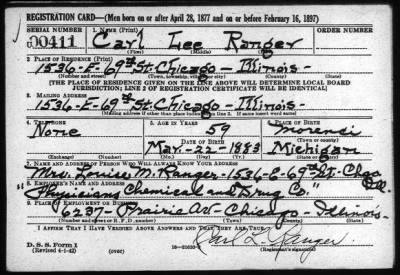 REGISTRATION CARD—(Men born on or after April 28, 1877 and on or before February 16, 1897)
SERIAL NUMBER 1. NAME (Print) ORDER NUMBER
00411 Carl Lee Ranger
(First) (Middle) (Last)
2. PLACE OF RESIDENCE (Print)
1536-E-69th St. Chicago - Illinois-
(Number and street) (Town, township, village, or city) (County) (State)
[THE PLACE OF RESIDENCE GIVEN ON THE LINE ABOVE WILL DETERMINE LOCAL BOARD
JURISDICTION; LINE 2 OF REGISTRATION CERTIFICATE WILL BE IDENTICAL]
3. MAILING ADDRESS
1536-E-69th St. Chicago - Illinois-
[Mailing address if other than place indicated on line 2. If same insert word same]
4. TELEPHONE 5. AGE IN YEARS 6. PLACE OF BIRTH
None 59 Morenci
DATE OF BIRTH
Mar.-22-1883 Michigan
(Exchange) (Number) (Mo.) (Day) (Yr.) (State or country)
7. NAME AND ADDRESS OF PERSON WHO WILL ALWAYS KNOW YOUR ADDRESS
Mrs. Louise M. Ranger-1536-E-69th St-Chgo
Ill.
8. EMPLOYER'S NAME AND ADDRESS
"Physicians Chemical and Drug Co."
9. PLACE OF EMPLOYMENT OR BUSINESS
6237-Prairie Av-Chicago-Illinois-
(Number and street or R. F. D. number) (Town) (County) (State)
I AFFIRM THAT I HAVE VERIFIED ABOVE ANSWERS AND THAT THEY ARE TRUE.
D. S. S. Form 1
(Revised 4-1-42) (over) Carl L. Ranger